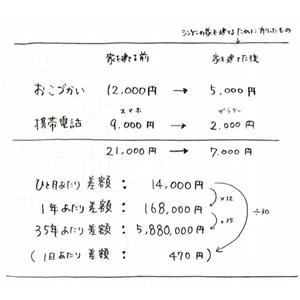 シンケンの家を建てるために削ったもの
家を建てる前 家を建てた後
おこづかい 12,000円 → 5,000円
スマホ ガラケー
携帯電話 9,000円 → 2,000円
21,000円 → 7,000円
ひと月あたり 差額 : 14,000円
×12
1年あたり 差額 : 168,000円
×35
35年あたり 差額 : 5,880,000円
÷30
(1日あたり 差額 : 470円)